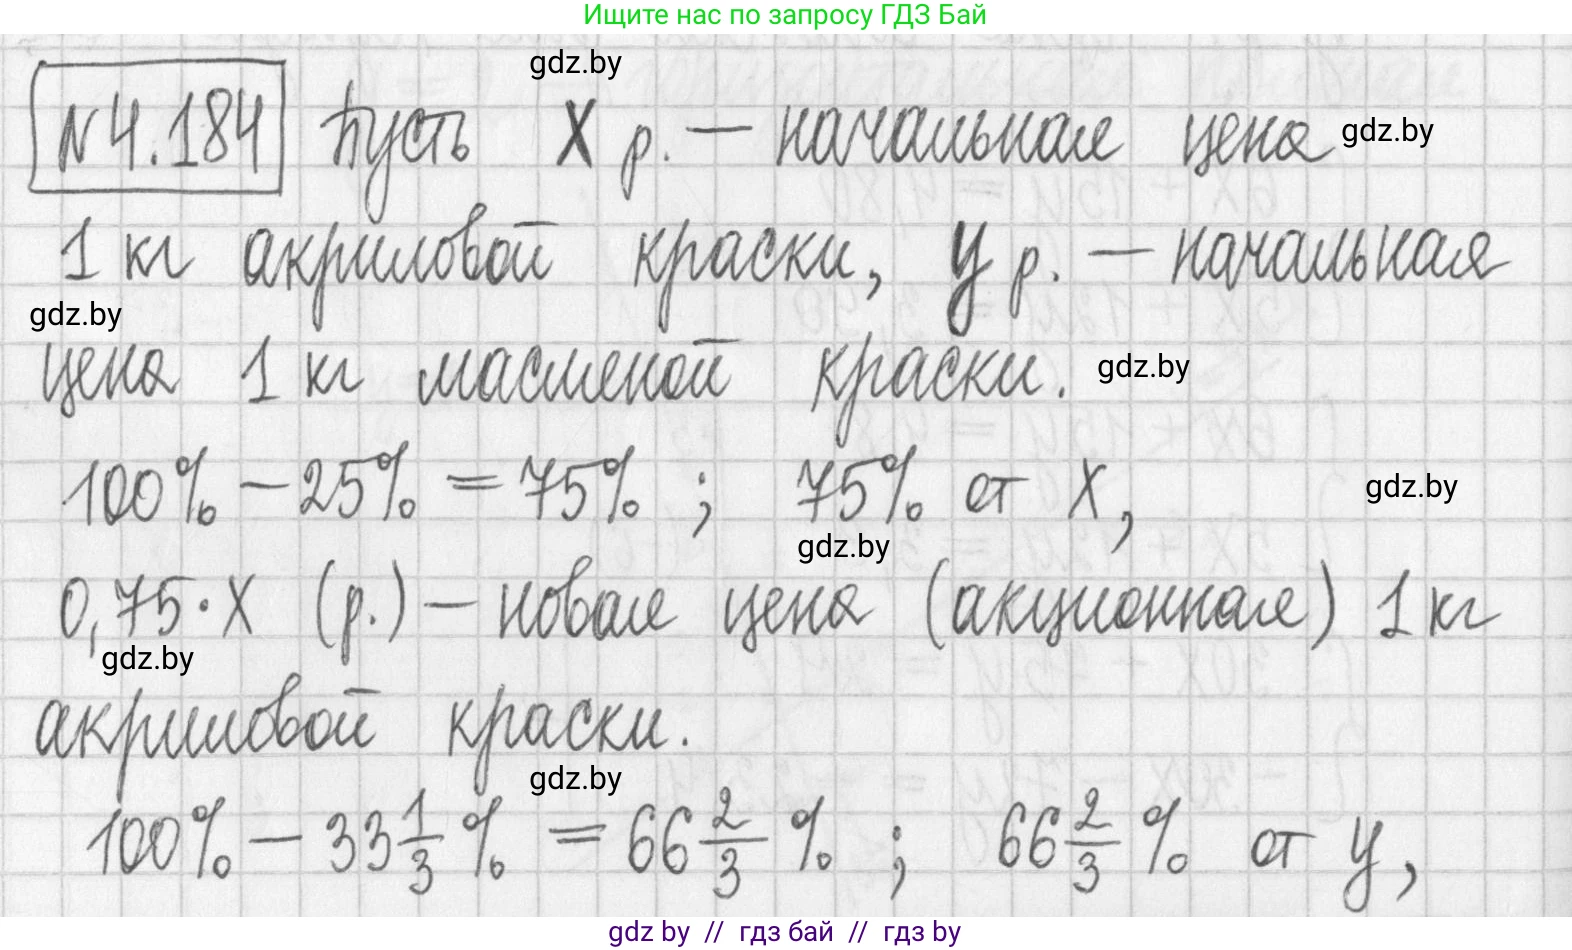 Ищите нас по запросу ГДЗ Бай
gdz.by
№4.184 Пусть x р. — начальная цена gdz.by
1 кг акриловой краски, y р. — начальная
gdz.by
цена 1 кг масленой краски. gdz.by
100% — 25% = 75% ; 75% от x, gdz.by
gdz.by
0,75·x (р.) — новая цена (акционная) 1 кг
gdz.by
акриловой краски.
gdz.by
100% — 33 1/3 % = 66 2/3 % ; 66 2/3 % от y,
gdz by // гдз бай // гдз by